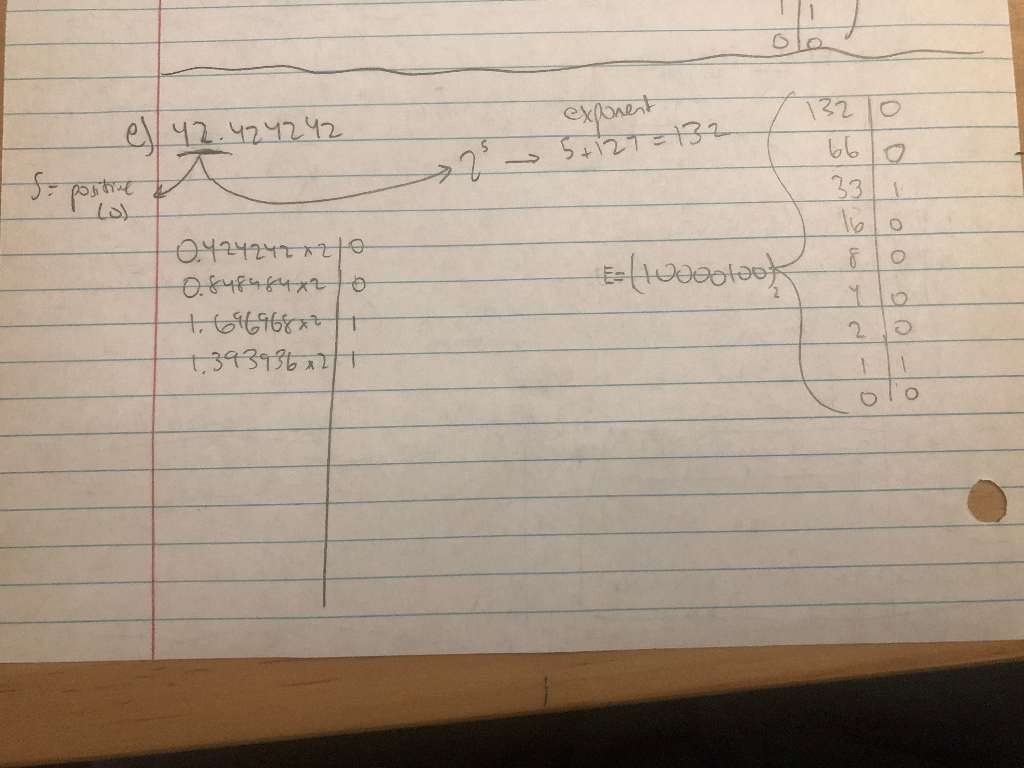 1 | 1
0 | 0
e) 42.424242
S = positive
(0)
2^5 →
exponent
5+127 = 132
0.424242 x 2 | 0
0.848484 x 2 | 0
1.696968 x 2 | 1
1.393936 x 2 | 1
E = (10000100)₂
132 | 0
66 | 0
33 | 1
16 | 0
8 | 0
4 | 0
2 | 0
1 | 1
0 | 0